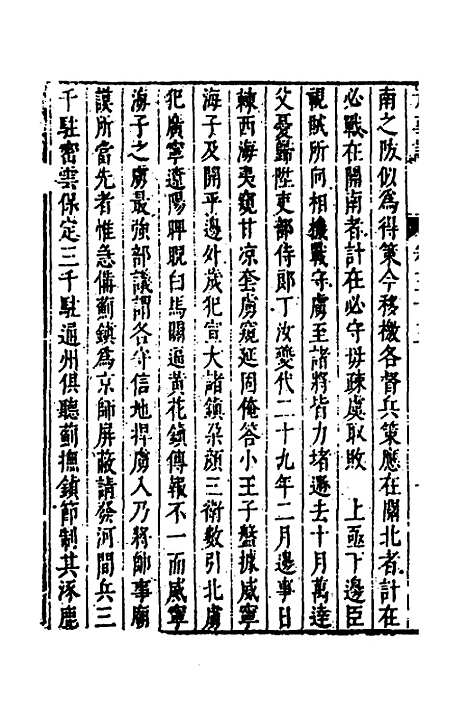 南之防似爲得策今移檄各督兵策應在關北者計在
必戰在關南者計在必守毋疎虞取敗　上亟下邊臣
視賊所向相機戰守虜至諸將皆力堵遯去十月萬達
父憂歸陞吏部侍郎丁汝夔代二十九年二月邊事日
棘西海夷窺甘凉套虜窺延固俺答小王子盤據威寧
海子及開平邊外歲犯宣大諸鎮朶顔三衛數引北虜
犯廣寧遼陽睥睨白馬關逼黃花鎮傳報不一而威寧
海子之虜最強部議謂各守信地捍虜入乃將帥事廟
謨所當先者惟急備薊鎮爲京師屏蔽請發河間兵三
千駐密雲保定三千駐通州俱聽薊撫鎮節制其涿鹿